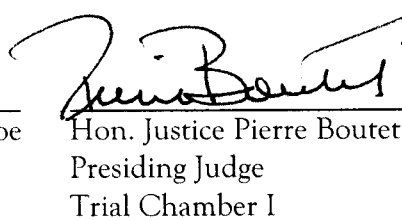 oe Hon. Justice Pierre Boutet
Presiding Judge
Trial Chamber I